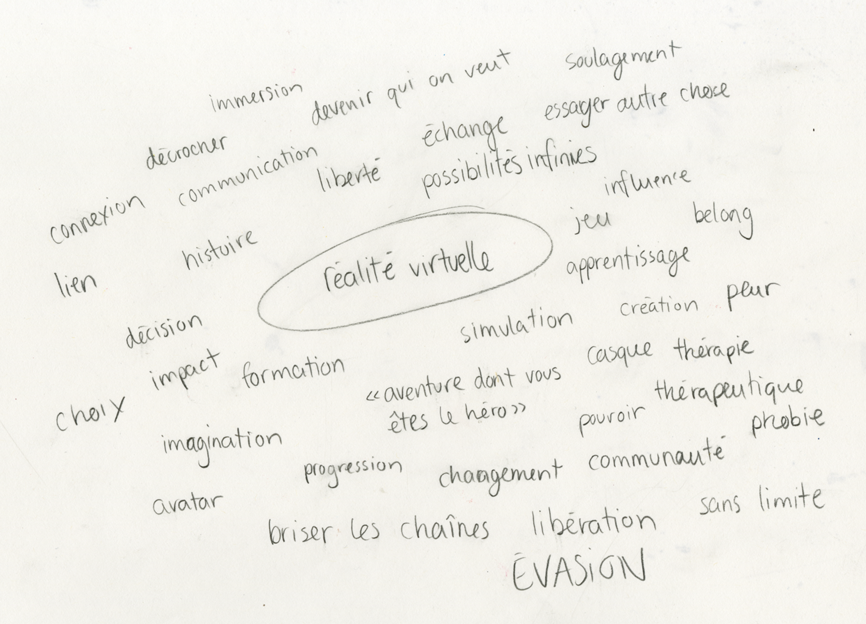 immersion
devenir qui on veut
soulagement
décrocher
échange
essayer autre chose
connexion
communication
liberté
possibilités infinies
influence
lien
histoire
réalité virtuelle
jeu
belong
apprentissage
décision
simulation
création
peur
impact
formation
casque
thérapie
choix
« aventure dont vous
êtes le héro »
pouvoir
thérapeutique
phobie
imagination
progression
changement
communauté
avatar
briser les chaînes
libération
sans limite
ÉVASION